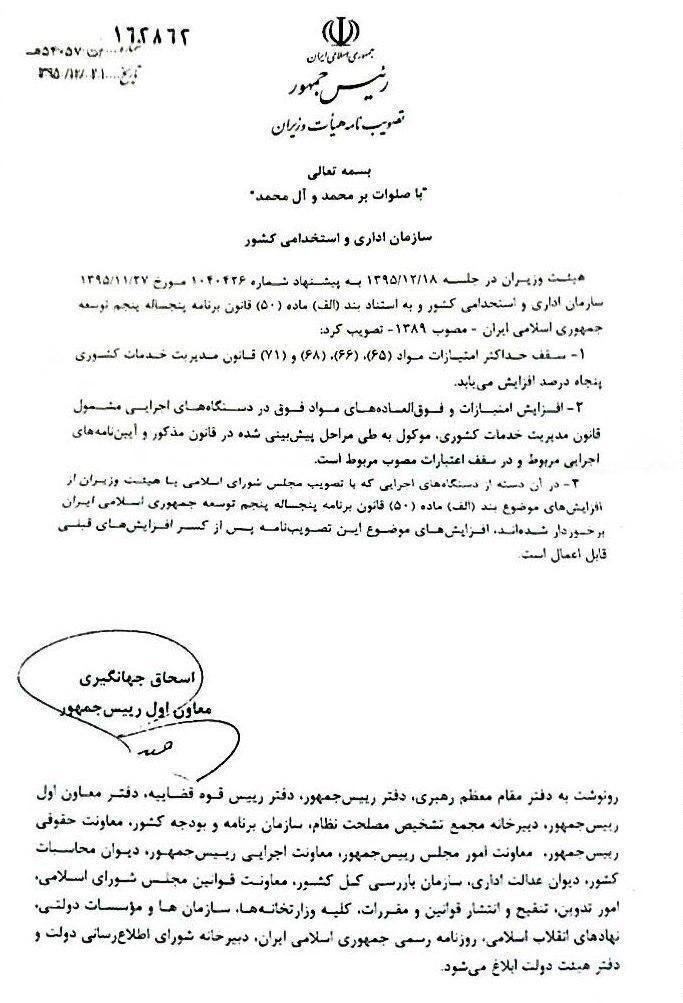 ۱۶۲۸۶۲
شماره.../ت۵۴۰۵۷هـ
تاریخ...۱۳۹۵/۱۲/۲۱
جمهوری اسلامی ایران
رئیس جمهور
تصویب نامه هیأت وزیران
بسمه تعالی
"با صلوات بر محمد و آل محمد"
سازمان اداری و استخدامی کشور
هیئت وزیران در جلسه ۱۳۹۵/۱۲/۱۸ به پیشنهاد شماره ۱۰۴۰۴۲۶ مورخ ۱۳۹۵/۱۱/۲۷
سازمان اداری و استخدامی کشور و به استناد بند (الف) ماده (۵۰) قانون برنامه پنجساله پنجم توسعه
جمهوری اسلامی ایران - مصوب ۱۳۸۹- تصویب کرد:
۱- سقف حداکثر امتیازات مواد (۶۵)، (۶۶)، (۶۸) و (۷۱) قانون مدیریت خدمات کشوری
پنجاه درصد افزایش می‌یابد.
۲- افزایش امتیازات و فوق‌العاده‌های مواد فوق در دستگاه‌های اجرایی مشمول
قانون مدیریت خدمات کشوری، موکول به طی مراحل پیش‌بینی شده در قانون مذکور و آیین‌نامه‌های
اجرایی مربوط و در سقف اعتبارات مصوب مربوط است.
۳- در آن دسته از دستگاه‌های اجرایی که با تصویب مجلس شورای اسلامی یا هیئت وزیران از
افزایش‌های موضوع بند (الف) ماده (۵۰) قانون برنامه پنجساله پنجم توسعه جمهوری اسلامی ایران
برخوردار شده‌اند، افزایش‌های موضوع این تصویب‌نامه پس از کسر افزایش‌های قبلی
قابل اعمال است.
اسحاق جهانگیری
معاون اول رییس‌جمهور
رونوشت به دفتر مقام معظم رهبری، دفتر رییس‌جمهور، دفتر رییس قوه قضاییه، دفتر معاون اول
رییس‌جمهور، دبیرخانه مجمع تشخیص مصلحت نظام، سازمان برنامه و بودجه کشور، معاونت حقوقی
رییس‌جمهور، معاونت امور مجلس رییس‌جمهور، معاونت اجرایی رییس‌جمهور، دیوان محاسبات
کشور، دیوان عدالت اداری، سازمان بازرسی کل کشور، معاونت قوانین مجلس شورای اسلامی،
امور تدوین، تنقیح و انتشار قوانین و مقررات، کلیه وزارتخانه‌ها، سازمان ها و مؤسسات دولتی،
نهادهای انقلاب اسلامی، روزنامه رسمی جمهوری اسلامی ایران، دبیرخانه شورای اطلاع‌رسانی دولت و
دفتر هیئت دولت ابلاغ می‌شود.